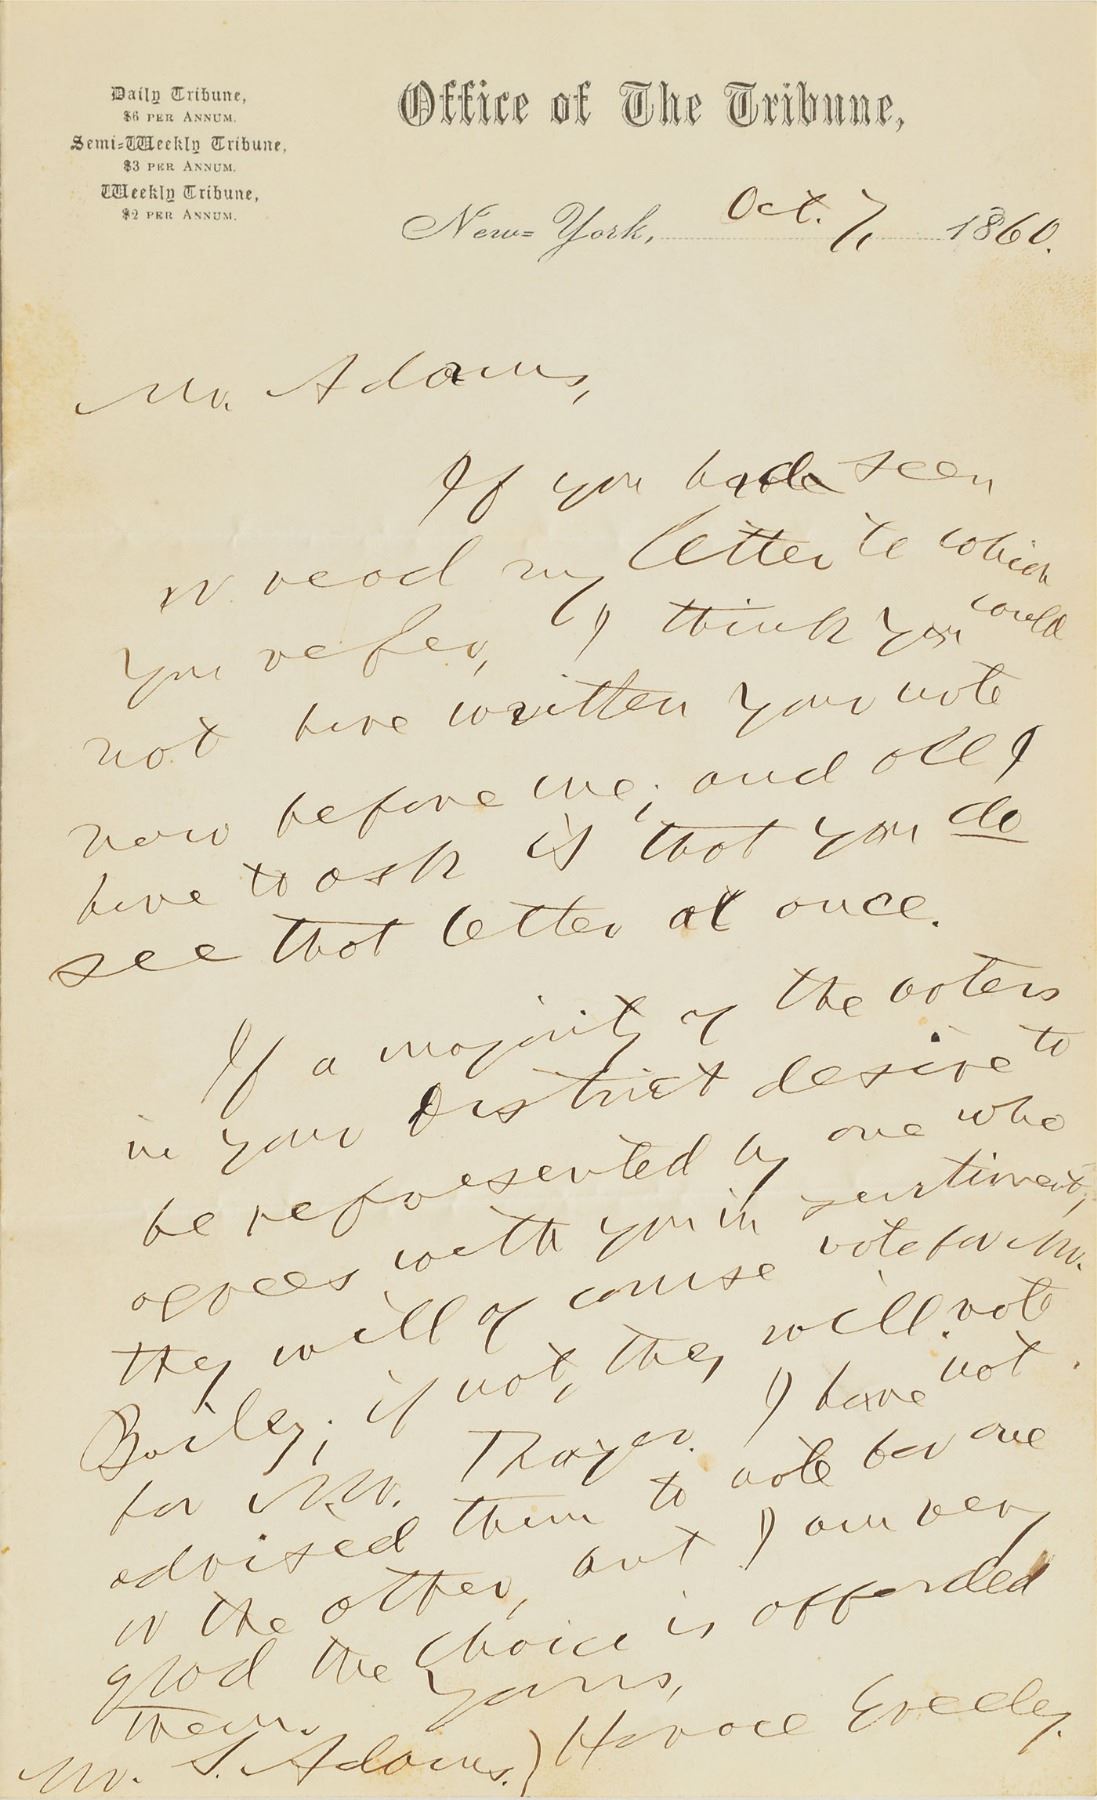 Daily Tribune,
$6 PER ANNUM.
Semi-Weekly Tribune,
$3 PER ANNUM.
Weekly Tribune,
$2 PER ANNUM.
Office of The Tribune,
New-York, Oct. 7, 1860.
Mr. Adams,
If you had seen
or read my letter to which
you refer, I think you could
not have written your note
now before me; and all I
have to ask is that you do
see that letter at once.
If a majority of the voters
in your District desire to
be represented by one who
agrees with you in sentiment,
they will of course vote for Mr.
Bailey; if not, they will vote
for Mr. Thayer. I have not
advised them to vote for one
or the other, but I am very
glad the choice is afforded
them.
Yours,
Horace Greeley.
Mr. S. Adams.)